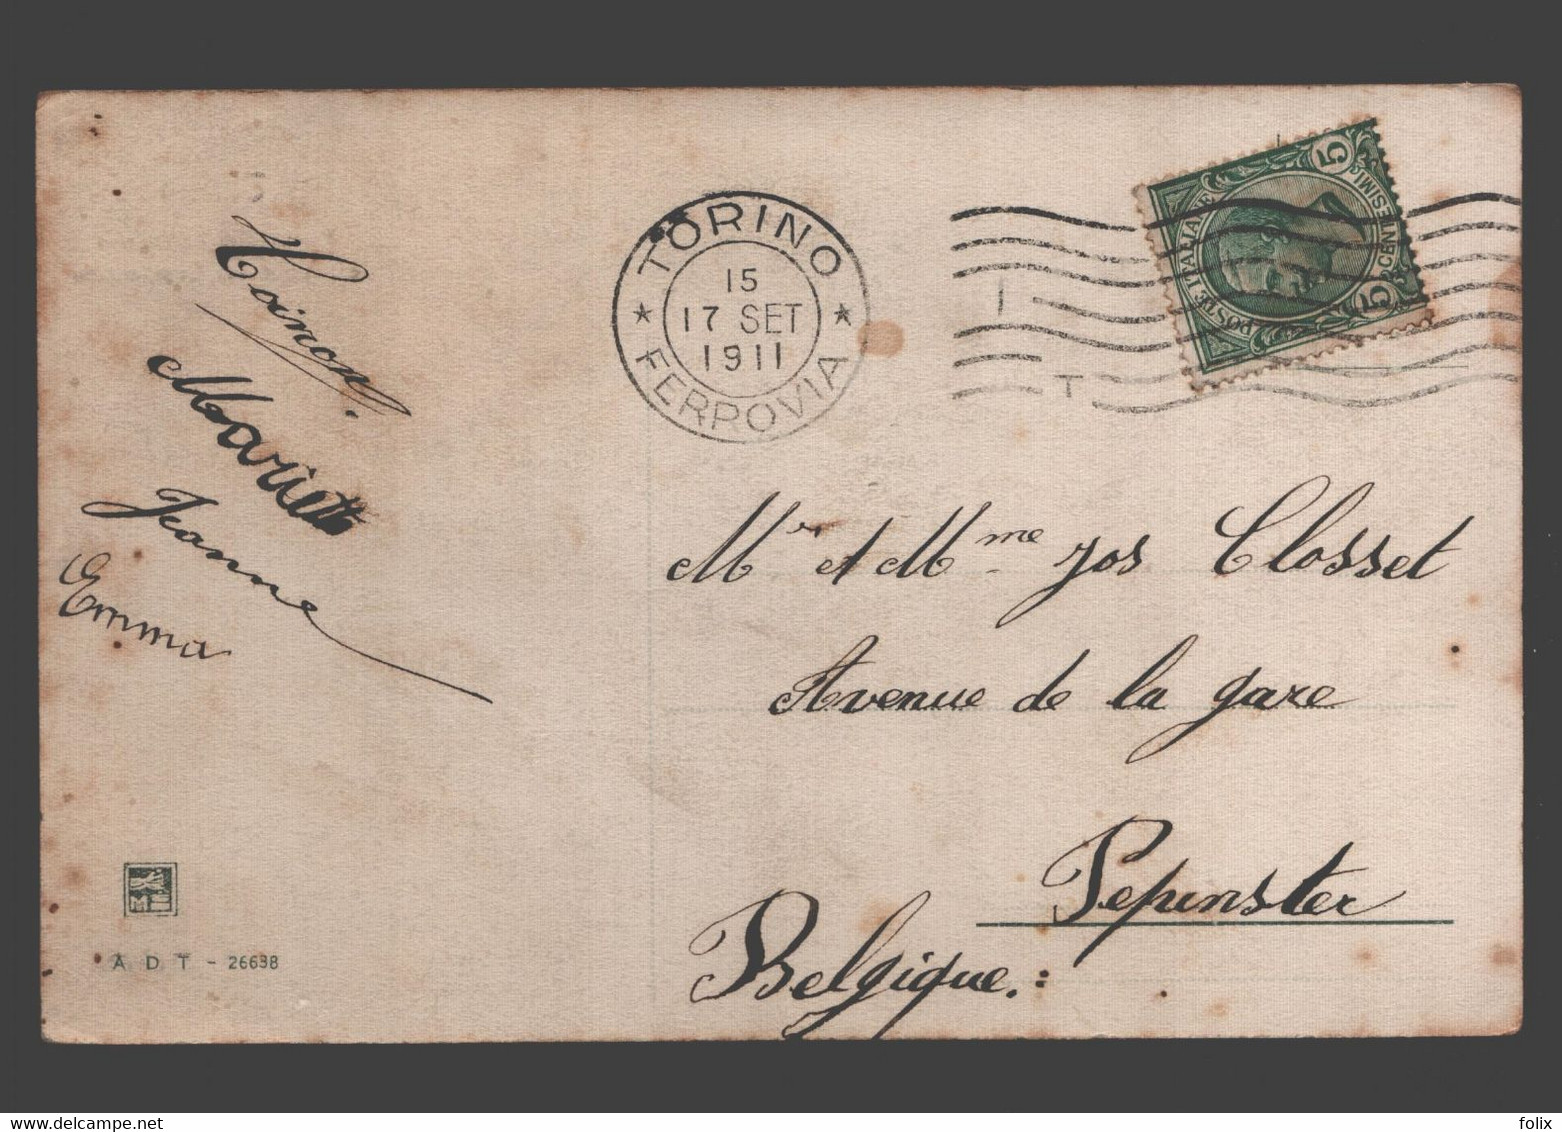 TORINO
15
17 SET
1911
FERROVIA
POSTE ITALIANE
5 CENTESIMI 5
T
Mariette
Jeanne
Emma
Mr et Mme Jos Closset
Avenue de la gare
Pepinster
Belgique.:
A D T - 26638
folix